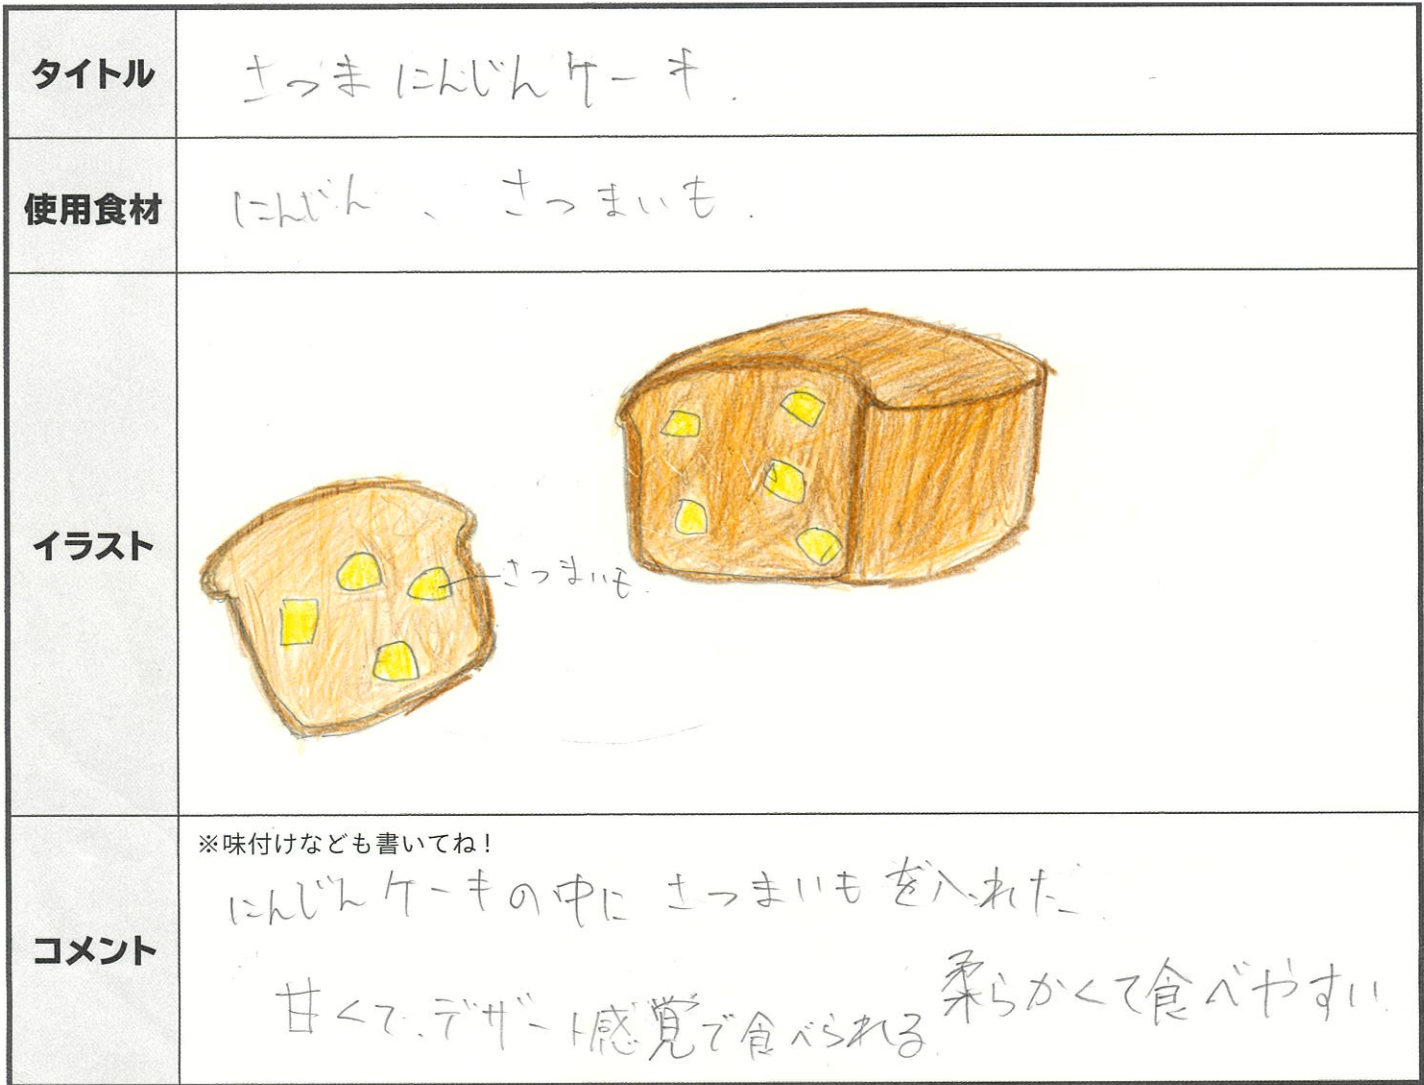 タイトル
さつまにんじんケーキ.
使用食材
にんじん、さつまいも.
イラスト
さつまいも.
コメント
※味付けなども書いてね!
にんじんケーキの中にさつまいもを入れた.
甘くて、デザート感覚で食べられる. 柔らかくて食べやすい.